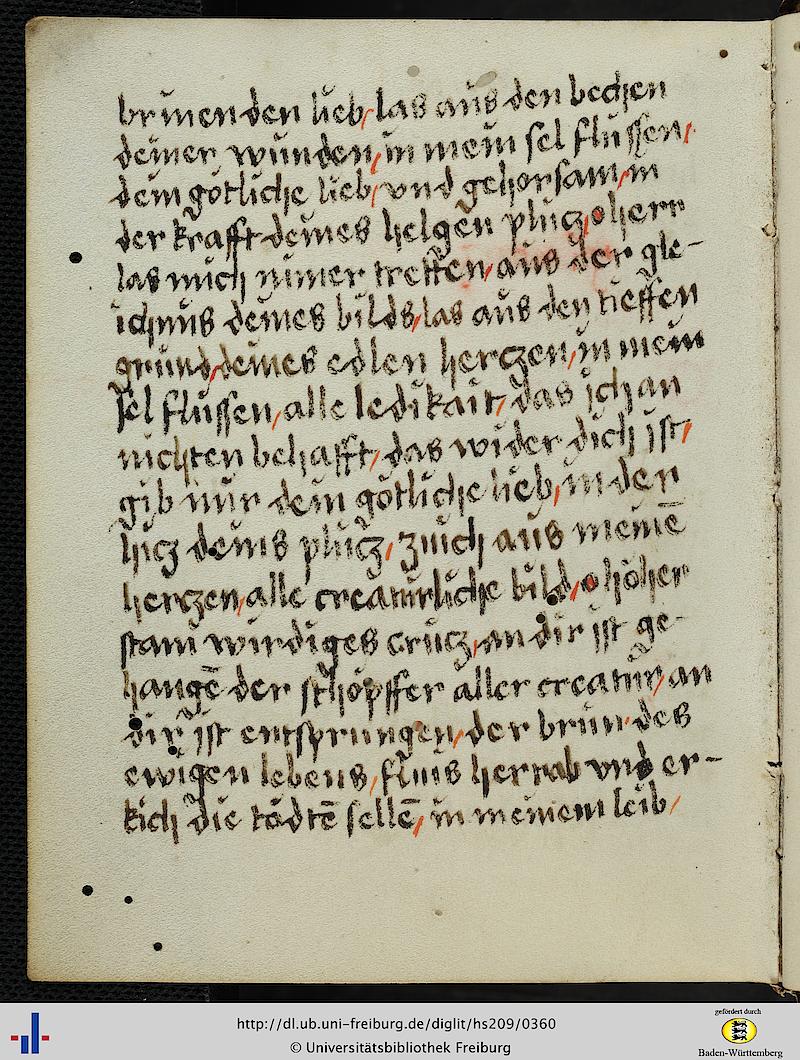 brinenden lieb, las aus den bechen
deiner wunden, in mein sel flussen,
dein götliche lieb, und gehorsam, in
der krafft deines helgen plucz, o herr
las mich nimer treffen, aus der gle-
ichnus deines bilds, las aus den tieffen
grund, deines edlen herczen, in mein
sel flussen, alle ledikait, das ich an
nichten behafft, das wider dich ist,
gib mir dein götliche lieb, in der
hicz deins plucz, zuich aus meinē
herczen, alle creaturliche bild, o höher
stam wirdiges crucz, an dir ist ge-
hangē der schöpffer aller creatur, an
dir ist entsprungen, der brun des
ewigen lebens, flius herrab vnd er-
kich die tödtē sellē, in meinem leib,
http://dl.ub.uni-freiburg.de/diglit/hs209/0360
© Universitätsbibliothek Freiburg
gefördert durch
Baden-Württemberg